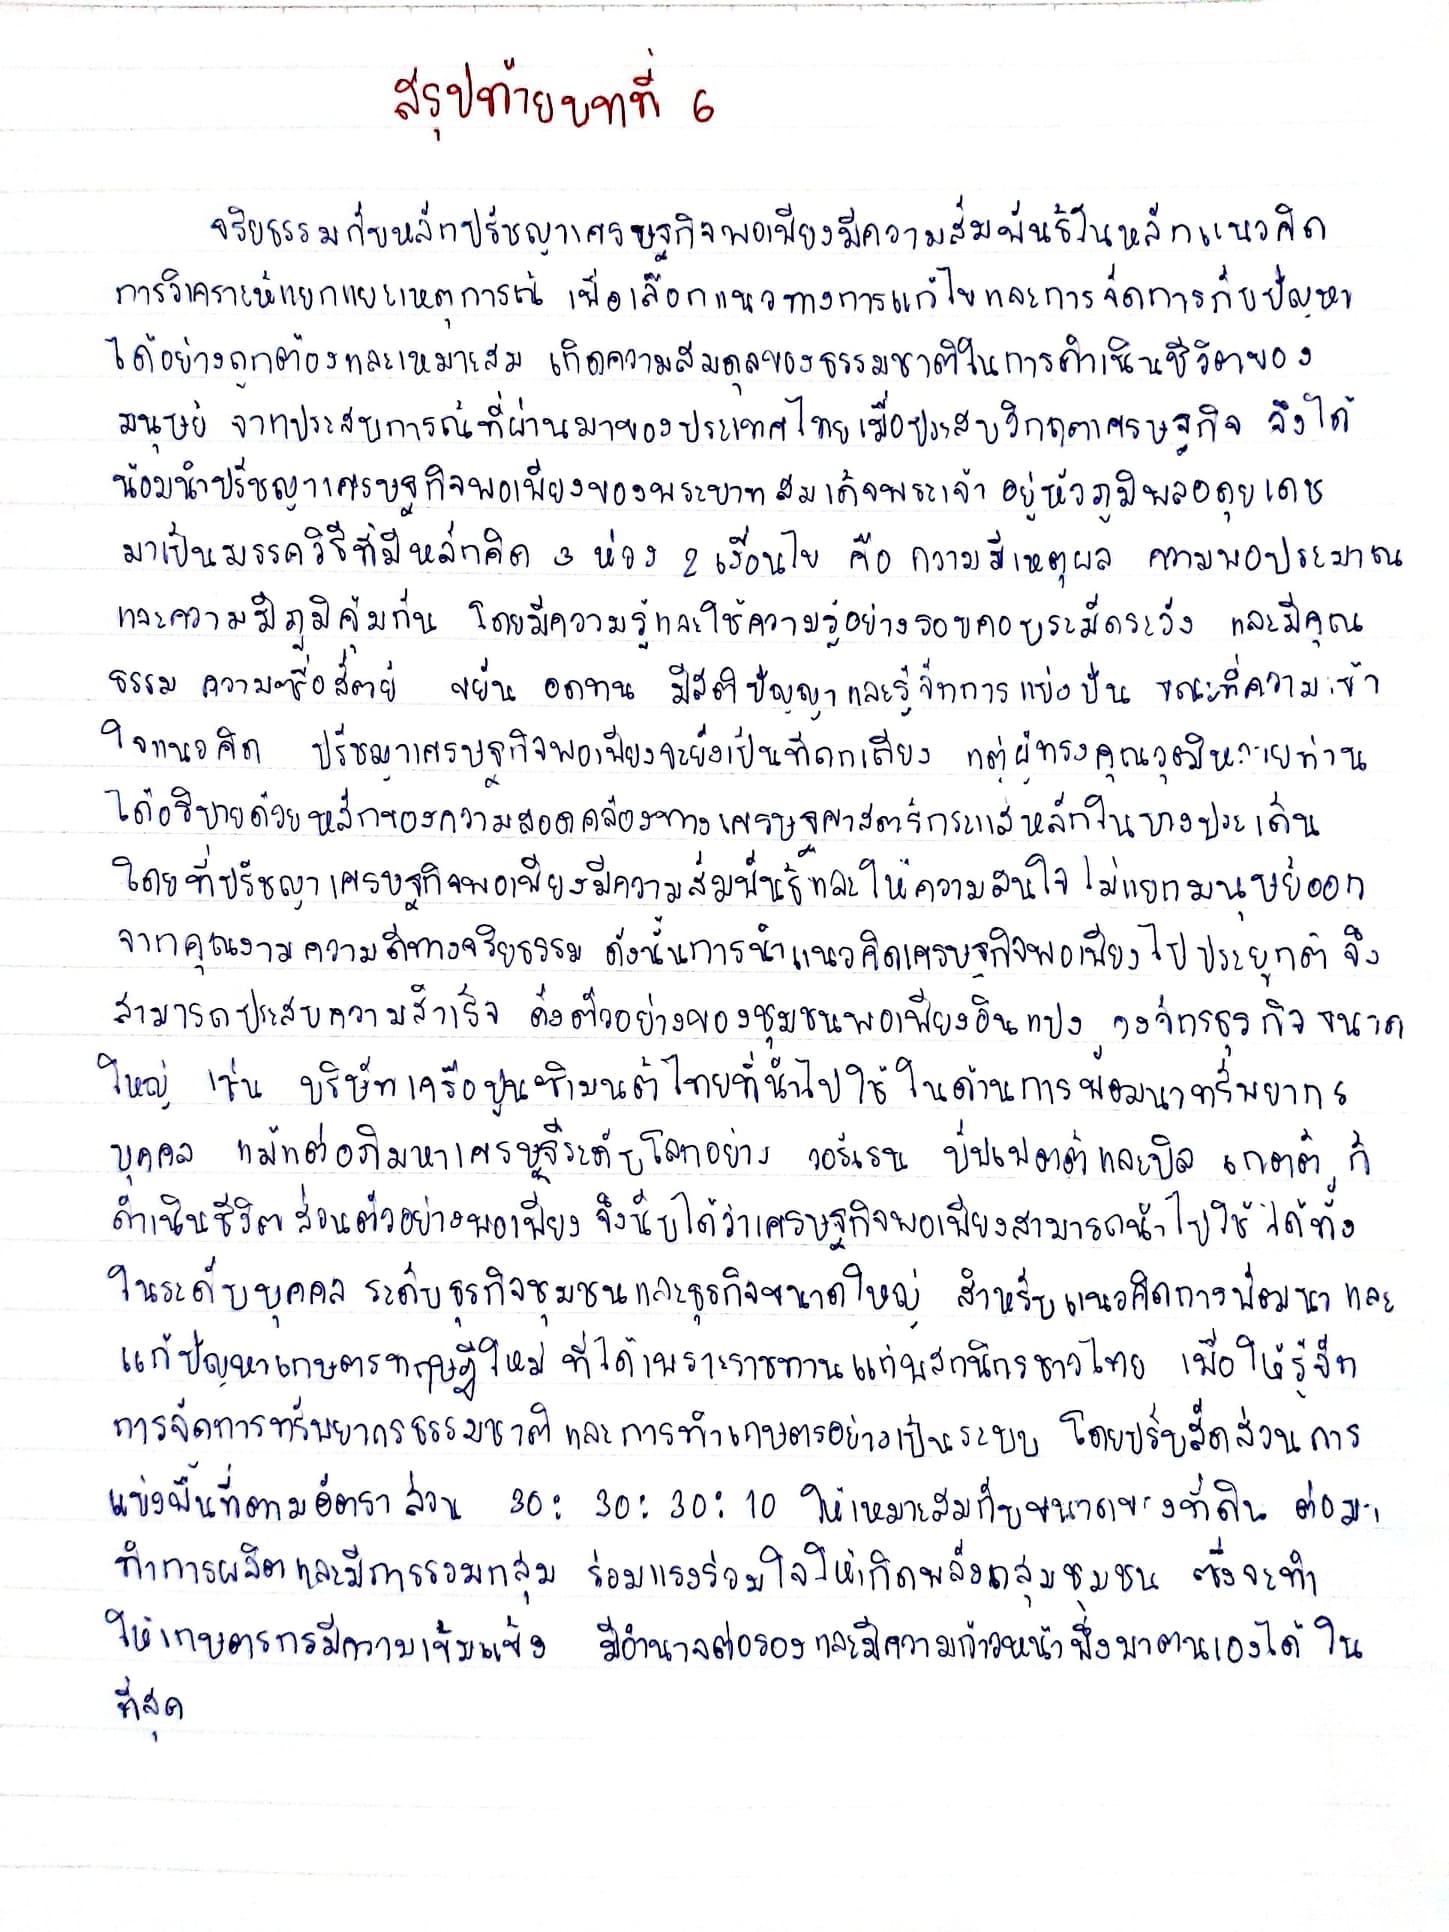 สรุปท้ายบทที่ 6
จริยธรรมกับหลักปรัชญาเศรษฐกิจพอเพียงมีความสัมพันธ์ในหลักแนวคิด
การวิเคราะห์แยกแยะเหตุการณ์ เพื่อเลือกแนวทางการแก้ไขและการจัดการกับปัญหา
ได้อย่างถูกต้องและเหมาะสม เกิดความสมดุลของธรรมชาติในการดำเนินชีวิตของ
มนุษย์ จากประสบการณ์ที่ผ่านมาของประเทศไทยเมื่อประสบวิกฤตเศรษฐกิจ จึงได้
น้อมนำปรัชญาเศรษฐกิจพอเพียงของพระบาทสมเด็จพระเจ้าอยู่หัวภูมิพลอดุยเดช
มาเป็นมรรควิธีที่มีหลักคิด 3 ห่วง 2 เงื่อนไข คือ ความมีเหตุผล ความพอประมาณ
และความมีภูมิคุ้มกัน โดยมีความรู้และใช้ความรู้อย่างรอบคอบระมัดระวัง และมีคุณ
ธรรม ความซื่อสัตย์ ขยัน อดทน มีสติปัญญาและรู้จักการแบ่งปัน ขณะที่ความเข้า
ใจแนวคิด ปรัชญาเศรษฐกิจพอเพียงจะยังเป็นที่ถกเถียง แต่ผู้ทรงคุณวุฒิหลายท่าน
ได้อธิบายด้วยหลักของความสอดคล้องทางเศรษฐศาสตร์กระแสหลักในบางประเด็น
โดยที่ปรัชญาเศรษฐกิจพอเพียงมีความสัมพันธ์และให้ความสนใจไม่แยกมนุษย์ออก
จากคุณงามความดีทางจริยธรรม ดังนั้นการนำแนวคิดเศรษฐกิจพอเพียงไปประยุกต์ จึง
สามารถประสบความสำเร็จ ดังตัวอย่างของชุมชนพอเพียงอินแปง วงจักรธุรกิจขนาด
ใหญ่ เช่น บริษัทเครือปูนซิเมนต์ไทยที่นำไปใช้ในด้านการพัฒนาทรัพยากร
บุคคล แม้แต่อภิมหาเศรษฐีระดับโลกอย่าง วอร์เรน บัฟเฟตต์และบิล เกตต์ ก็
ดำเนินชีวิตส่วนตัวอย่างพอเพียง จึงนับได้ว่าเศรษฐกิจพอเพียงสามารถนำไปใช้ได้ทั้ง
ในระดับบุคคล ระดับธุรกิจชุมชนและธุรกิจขนาดใหญ่ สำหรับแนวคิดการพัฒนาและ
แก้ปัญหาเกษตรทฤษฎีใหม่ ที่ได้เพราะราชทานแก่พสกนิกรชาวไทย เพื่อให้รู้จัก
การจัดการทรัพยากรธรรมชาติและการทำเกษตรอย่างเป็นระบบ โดยปรับสัดส่วนการ
แบ่งพื้นที่ตามอัตราส่วน 30: 30: 30: 10 ให้เหมาะสมกับขนาดของที่ดิน ต่อมา
ทำการผลิตและมีการรวมกลุ่ม ร่วมแรงร่วมใจให้เกิดพลังกลุ่มชุมชน ซึ่งจะทำ
ให้เกษตรกรมีความเข้มแข็ง มีอำนาจต่อรองและมีความก้าวหน้าพึ่งพาตนเองได้ใน
ที่สุด